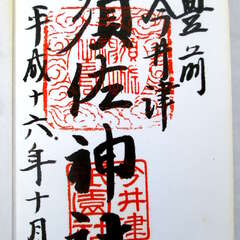 豊前
今井津
須佐神社
平成十六年十月